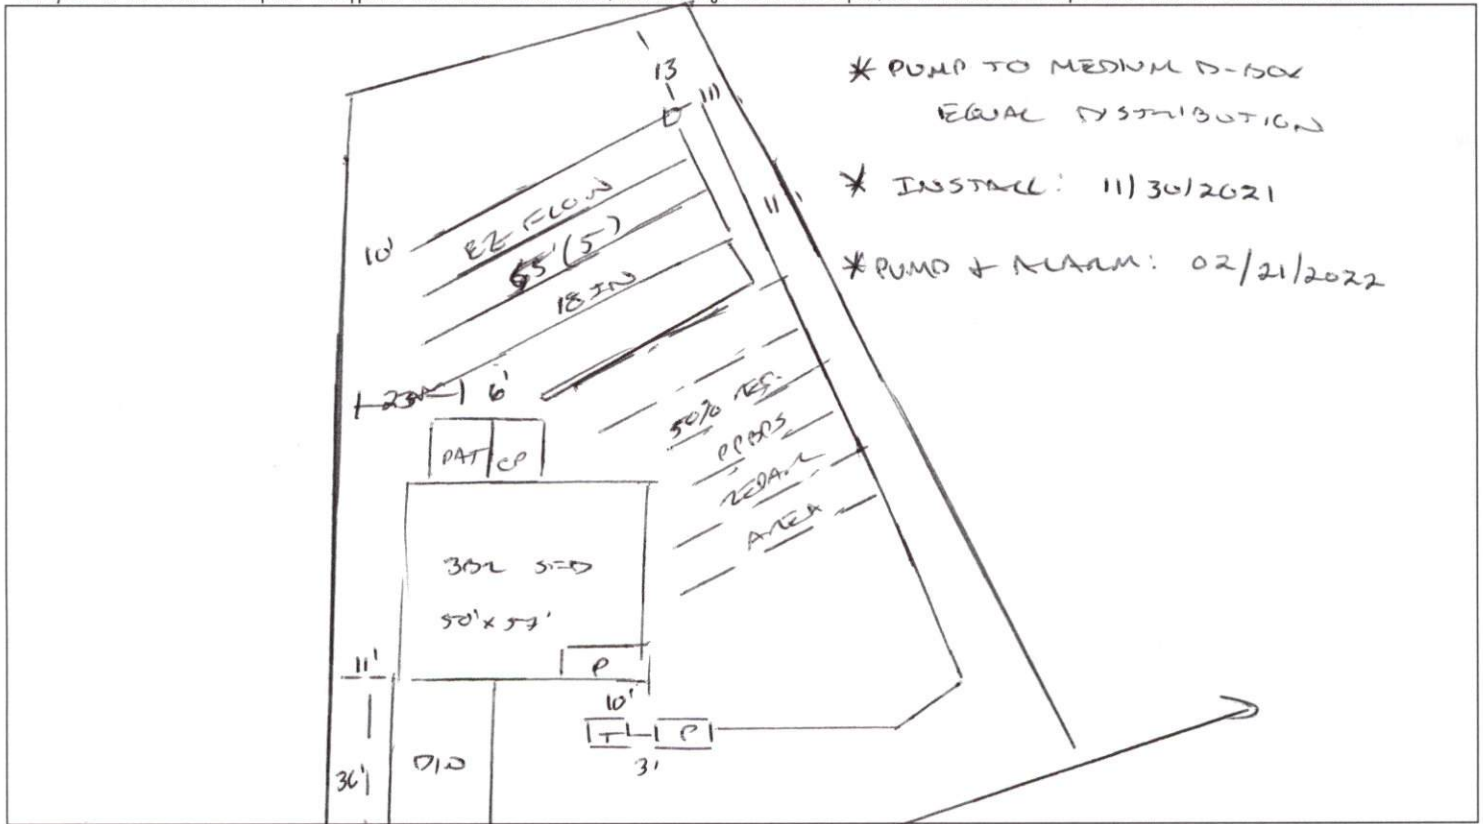 * PUMP TO MEDIUM D-BOX
EQUAL DISTRIBUTION
* INSTALL: 11/30/2021
* PUMP & ALARM: 02/21/2022
13
D
11'
11'
10'
EZ FLOW
65' (5)
18 IN
23
6'
PAT
CP
50% RES.
PPBPS
REPAIR
AREA
3BR SFD
50' x 57'
P
11'
10'
T
P
3'
36'
D/W